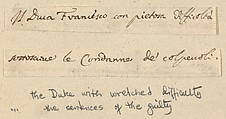 Il Duca Francesco con pietosa difficoltà
le Condanne de' colpevoli.
the Duke with wretched difficulty
... the sentences of the guilty